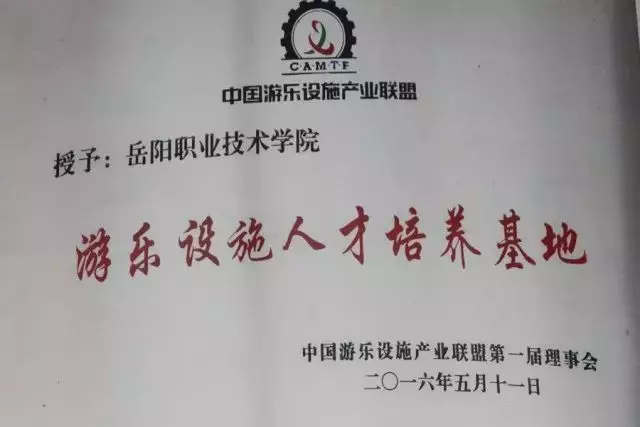 C·A·M·T·F
中国游乐设施产业联盟
授予：岳阳职业技术学院
游乐设施人才培养基地
中国游乐设施产业联盟第一届理事会
二〇一六年五月十一日